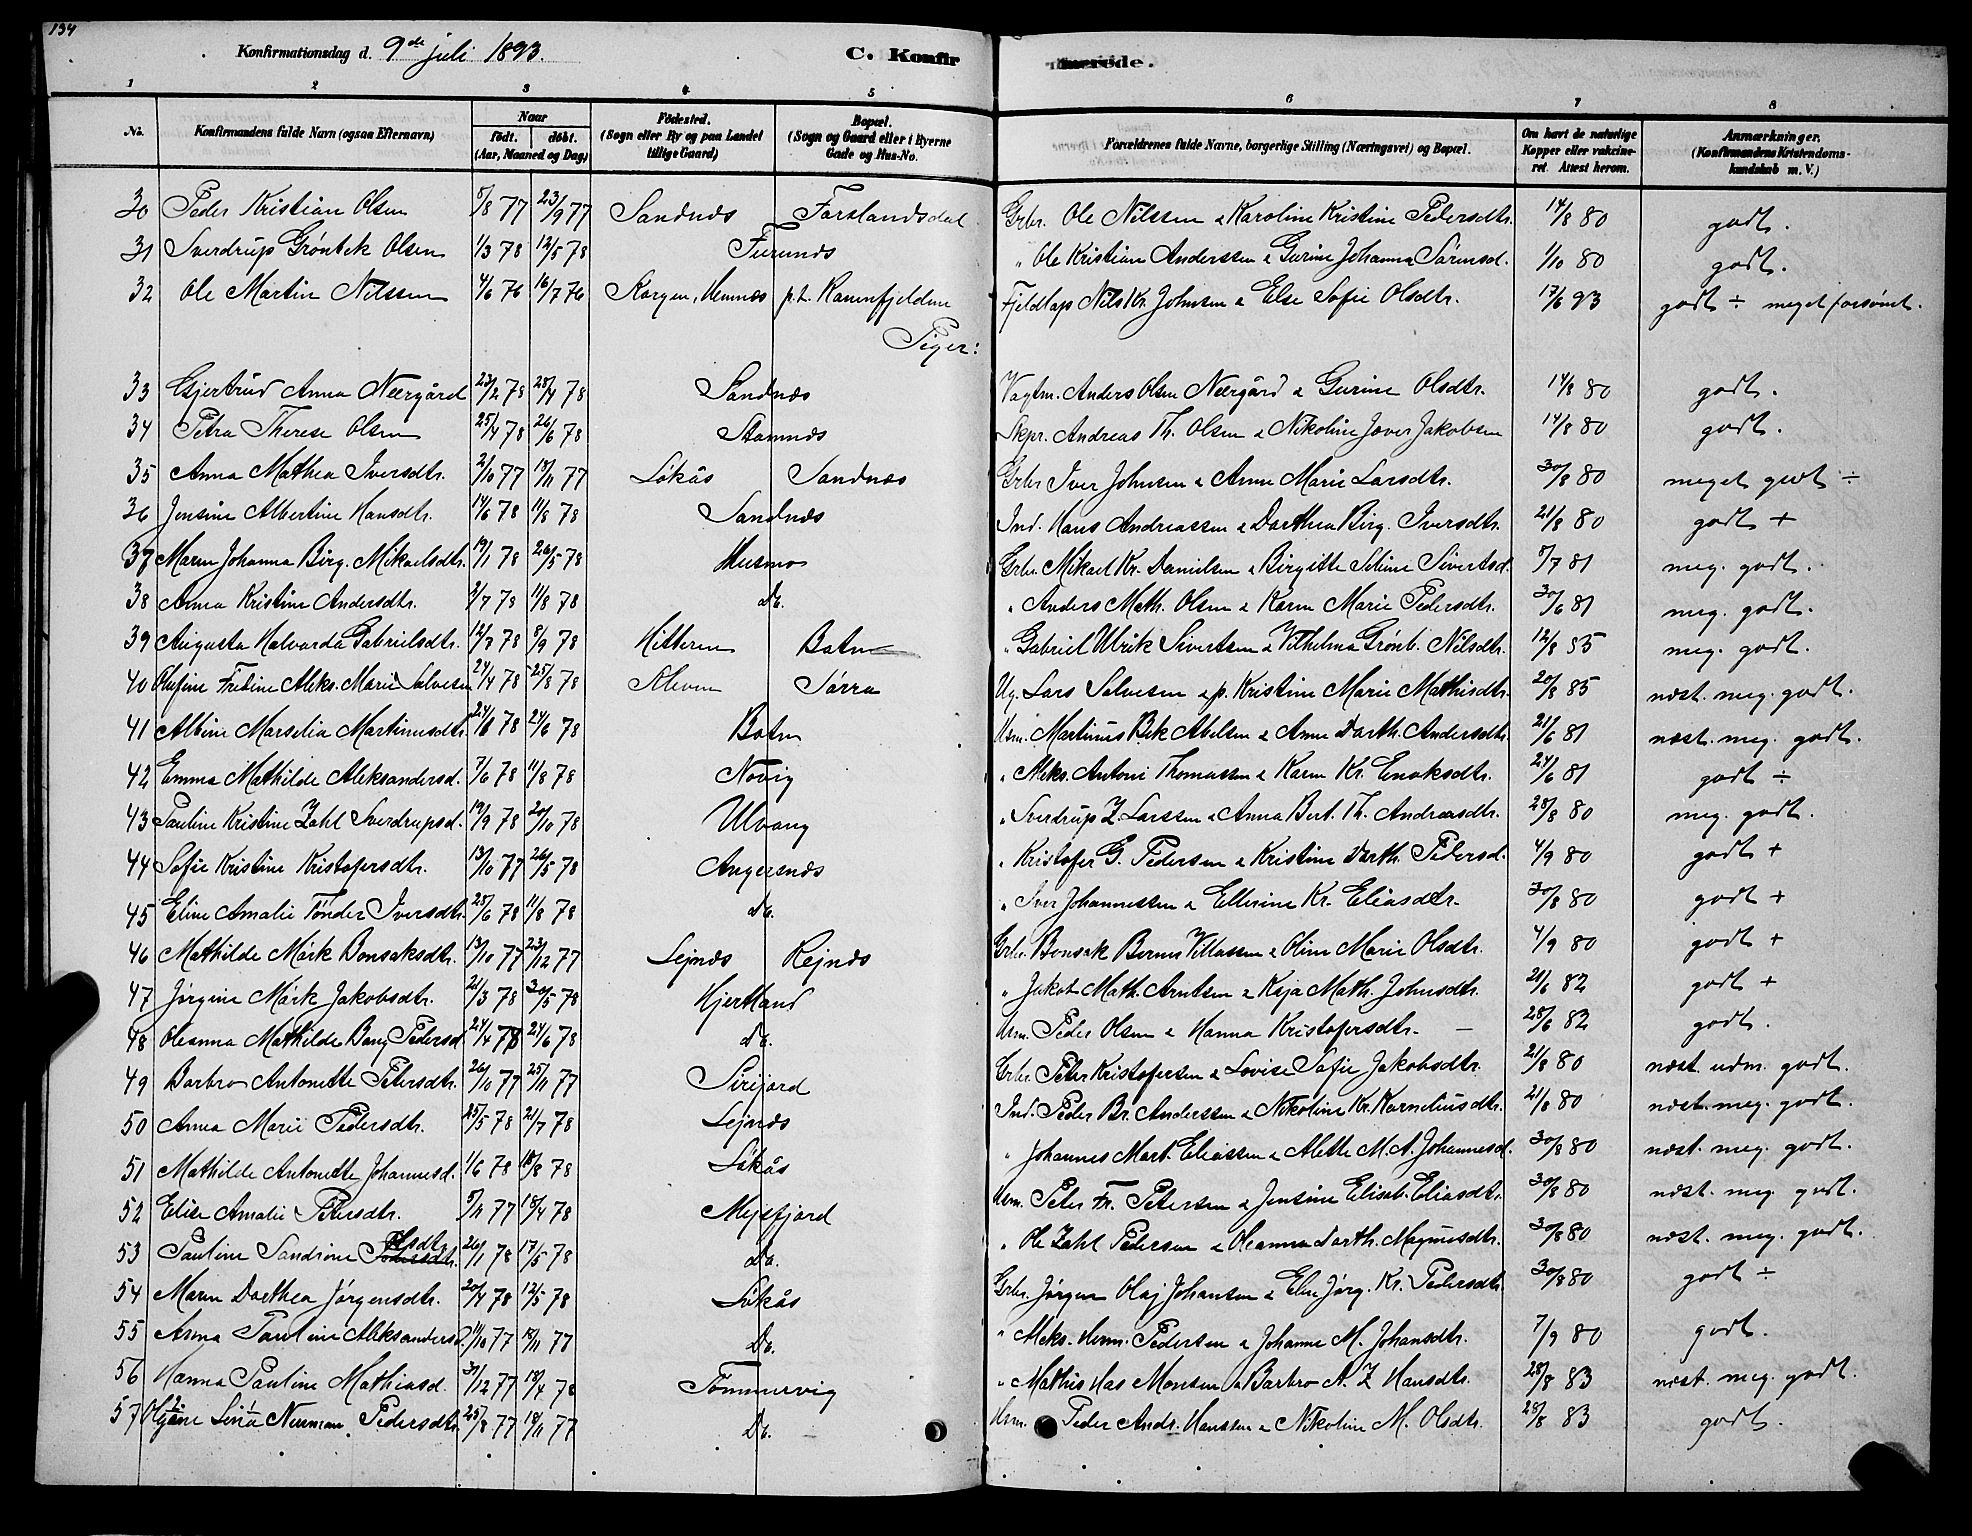 134
Konfirmationsdag d. 9de juli 1893. C. Konfirmerede.
1 2 3 4 5 6 7 8
No. Konfirmandens fulde Navn (ogsaa Efternavn) Naar født. døbt. (Aar, Maaned og Dag) Fødested. (Sogn eller By og paa Landet tillige Gaard) Bopæl. (Sogn og Gaard eller i Byerne Gade og Hus-No. Forældrenes fulde Navne, borgerlige Stilling (Næringsvei) og Bopæl. Om havt de naturlige Kopper eller vakcineret. Attest herom. Anmærkninger. (Konfirmandens Kristendomskundskab m. V.)
30 Peder Kristian Olsen 5/8 77 23/9 77 Sandnæs Forslandsdal Grbr. Ole Nilssen & Karoline Kristine Pedersdtr. 14/8 80 godt.
31 Sverdrup Grønbek Olsen 1/3 78 12/5 78 Furunæs " Ole Kristian Anderssen & Gurine Johanna Sørensd. 1/10 80 godt.
32 Ole Martin Nilssen 4/6 76 16/7 76 Korgen, Hemnæs p.t. Kannfjeldene Fjeldlap Nils Kr. Johnsen & Else Sofie Olsdtr. 17/6 93 godt ÷ meget forsømt.
Piger:
33 Gjertrud Anna Neergård 23/2 78 28/4 78 Sandnæs Vagtm. Anders Olsen Neergård & Gurine Olsdtr. 14/8 80 godt.
34 Petra Therese Olsen 25/4 78 26/6 78 Stamnæs Skpr. Andreas Th. Olsen & Nikoline Jæver Jakobsen 14/8 80 godt.
35 Anna Mathea Iversdtr. 2/10 77 18/11 77 Løkås Sandnæs Grbr Iver Johnsen & Anne Marie Larsdtr. 30/8 80 meget godt ÷
36 Jensine Albertine Hansdtr. 14/6 78 11/8 78 Sandnæs Ind. Hans Andreassen & Dorthea Birg. Iversdtr. 21/8 80 godt +
37 Maren Johanna Birg. Mikaelsdtr. 19/1 78 26/5 78 Husmo Grbr. Mikael Kr. Danielsen & Birgitte Seline Sivertsd. 5/7 81 meg. godt.
38 Anna Kristine Andersdtr. 2/7 78 11/8 78 do. " Anders Math. Olsen & Karen Marie Pedersdtr. 30/6 81 meg. godt.
39 Augusta Halvarda Gabrielsdtr. 12/7 78 8/9 78 Hitteren Botn " Gabriel Ulrik Sivertsen & Vilhelma Grønb. Nilsdtr. 12/8 85 meg. godt.
40 Olufine Fredine Aleks. Marie Salvesen 24/4 78 25/8 78 Alven Sørra Ug. Lars Salvesen & p. Kristine Marie Mathisdtr. 20/8 85 næst. meg. godt.
41 Albine Marselia Martinusdtr. 24/1 78 24/6 78 Botn Hsm. Martinus Bek Abelsen & Anne Dorth. Andersdtr. 21/6 81 næst. meg. godt.
42 Emma Mathilde Aleksandersd. 7/6 78 11/8 78 Novig " Aleks. Antoni Thomassen & Karen Kr. Enoksdtr. 24/6 81 godt ÷
43 Pauline Kristine Zahl Sverdrupsd. 19/9 78 20/10 78 Ulvang " Sverdrup Z. Larssen & Anna Bert. Th. Andreasdtr. 28/8 80 meg. godt.
44 Sofie Kristine Kristofersdtr. 13/10 77 26/5 78 Angersnæs " Kristofer G. Pedersen & Kristine Dorth. Pedersd. 4/9 80 godt +
45 Eline Amalie Tønder Iversdtr. 28/6 78 11/8 78 do. " Iver Johannessen & Ellerine Kr. Eliasdtr. 30/8 80 godt +
46 Mathilde Mörk Bonsaksdtr. 13/10 77 23/12 77 Lejnæs Rejnæs Grbr. Bonsak Bernes Villassen & Oline Marie Olsdtr. 4/9 80 godt +
47 Jørgine Mörk Jakobsdtr. 21/3 78 30/5 78 Hjertland " Jakob Math. Arntsen & Kaja Math. Johnsdtr. 21/6 82 godt +
48 Oleanna Mathilde Bang Pedersd. 24/4 78 24/6 78 do. Hsm. Peder Olsen & Hanna Kristofersdtr. — 28/6 82 godt.
49 Barbro Antonette Petersdtr. 26/10 77 25/11 77 Sirijord Grbr. Peter Kristofersen & Lovise Sofie Jakobsdtr. 21/8 80 næst udm. godt.
50 Anna Marie Pedersdtr. 25/5 78 21/7 78 Lejnæs Ind. Peder Br. Anderssen & Nikoline Kr. Korneliusdtr. 21/8 80 næst. meg. godt.
51 Mathilde Antonette Johannesd. 1/6 78 18/8 78 Løkås " Johannes Mart. Eliassen & Alette M.A. Johannesd. 30/8 80 næst. meg. godt.
52 Elise Amalie Petersdtr. 5/11 77 18/4 78 Mejsfjord Hsm. Peter Fr. Petersen & Jensine Elisab. Eliasdtr. 30/8 80 næst. meg. godt.
53 Pauline Sandrine Olsdtr. 26/1 78 17/5 78 do. " Ole Zahl Pedersen & Oleanna Dorth. Magnusdtr. 30/8 80 næst. meg. godt.
54 Maren Dorthea Jørgensdtr. 20/4 78 12/5 78 Løkås Grbr. Jørgen Olaj Johansen & Eline Jørg. Kr. Pedersdtr. 30/8 80 godt ÷
55 Anna Pauline Aleksandersd. 11/10 77 18/11 77 Do. " Aleks. Herm. Pedersen & Johanne M. Johansdtr. 7/9 80 godt.
56 Hanna Pauline Mathiasd. 31/12 77 18/4 78 Tømmervig " Mathis Has Monsen & Barbro A. Z Hansdtr. 28/8 83 næst. meg. godt.
57 Lina Neuman Pedersdtr. 25/8 77 18/11 77 Do. Hsm. Peder Andr. Hanssen & Nikoline M. Olsdtr. 28/8 83 godt.